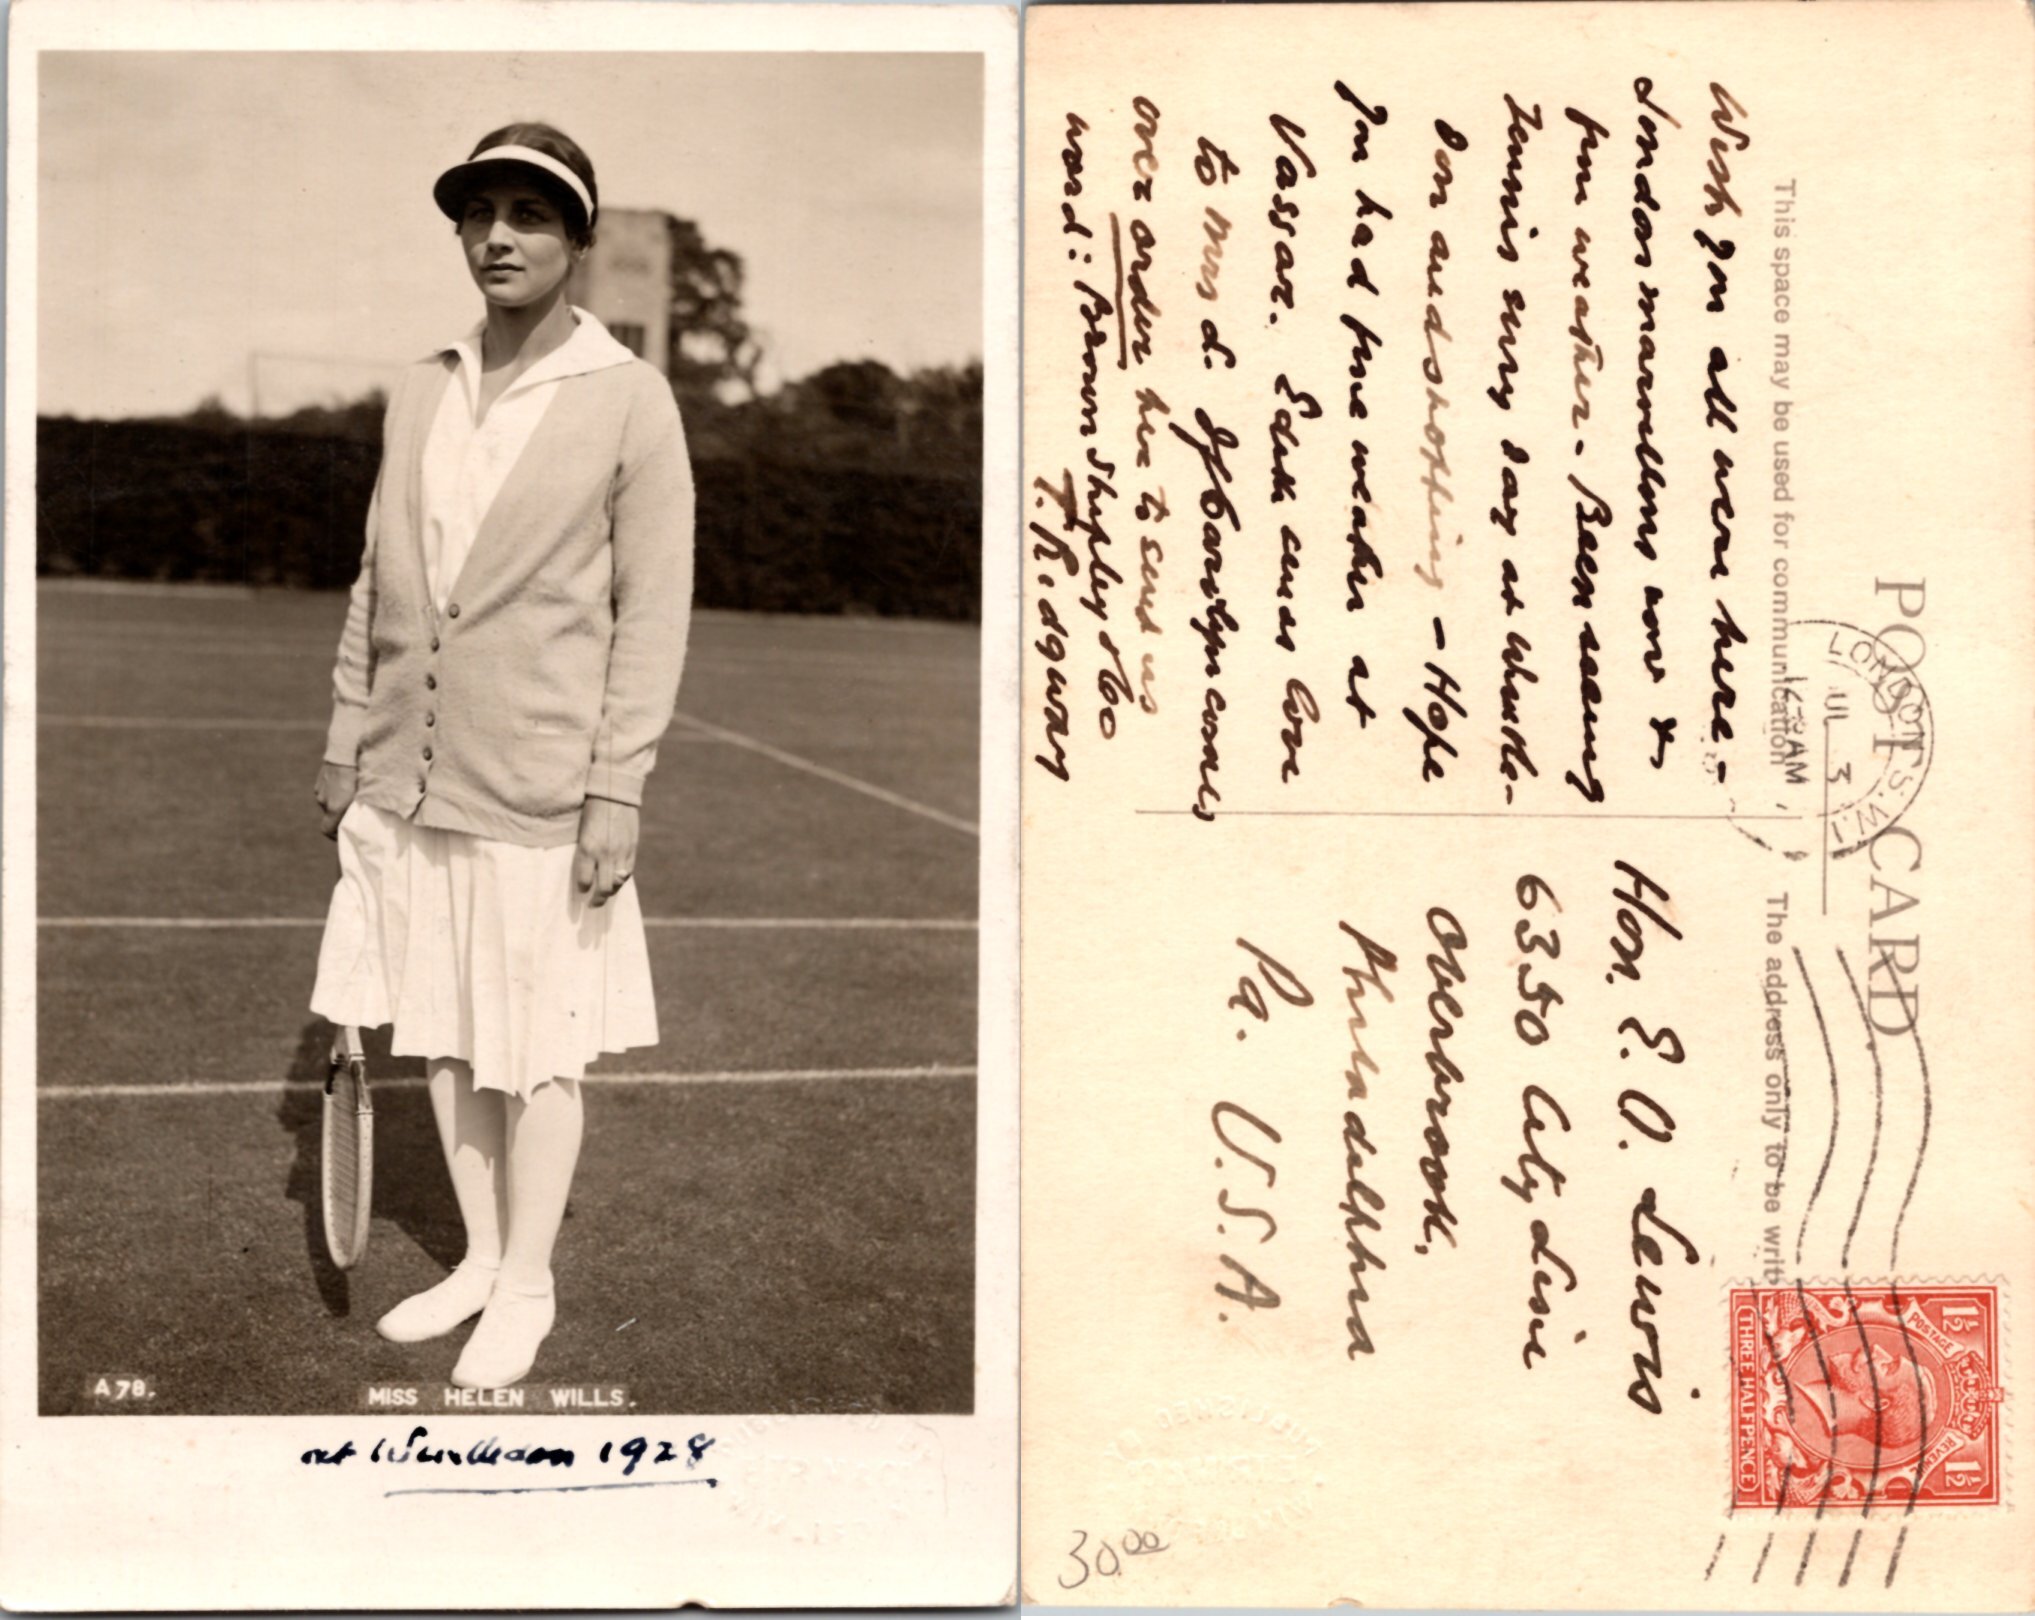 A 78.
MISS HELEN WILLS.
at Wimbledon 1928
POST CARD
This space may be used for communication
The address only to be writ
LONDON S.W.1
12 15 AM
JUL 3
Wish you all were here -
London marvellous now &
fine weather - Been seeing
Tennis every day at Wimble-
don and shopping - Hope
you had fine weather at
Vassar. Edith sends love
to Mrs L. If Carolyn comes
over order her to send us
word: Brown Shipley & Co
T. Ridgway
Hon. E. O. Lewis
6350 City Line
Overbrook.
Philadelphia
Pa. U.S.A.
POSTAGE
REVENUE
1½
1½
THREE HALFPENCE
PUBLISHED
30.00